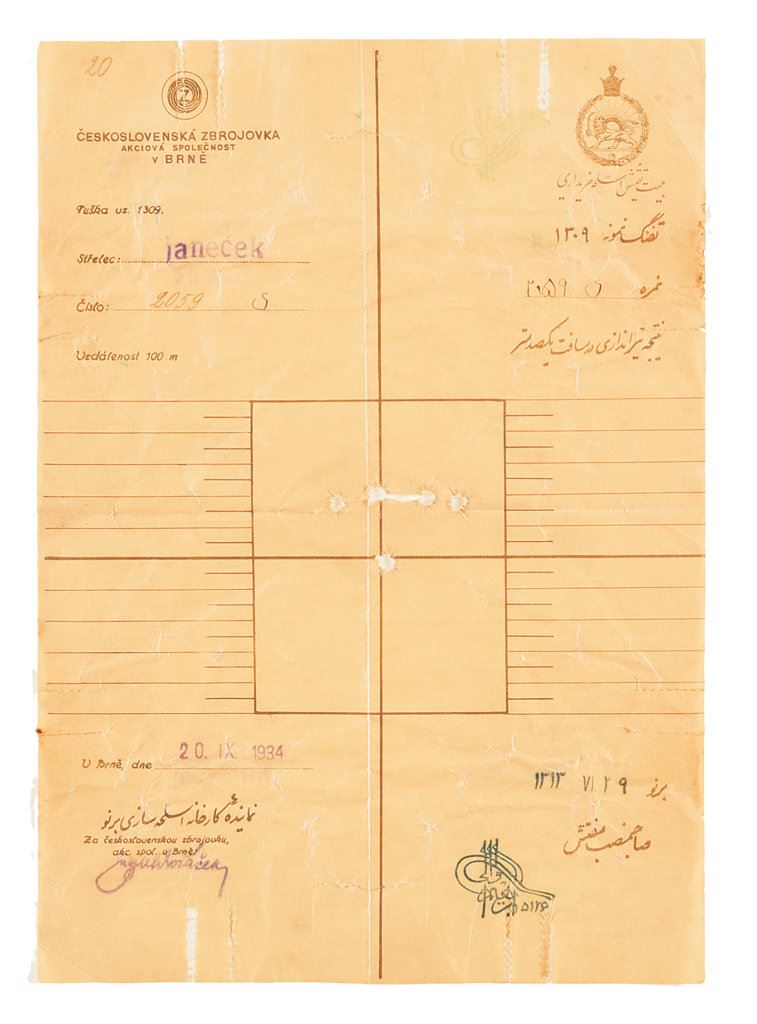 20
ČZ
ČESKOSLOVENSKÁ ZBROJOVKA
AKCIOVÁ SPOLEČNOST
V BRNĚ
Puška vz. 1309.
Střelec: janeček
Číslo: 2059 S
Vzdálenost 100 m
تفنگ نمونه ۱۳۰۹
نمره ۲۰۵۹ س
نتیجه تیراندازی در مسافت یکصد متر
V Brně, dne 20. IX. 1934
نمایندۀ کارخانه اسلحه سازی برنو
Za československou zbrojovku,
akc. spol. v Brně:
برنو ۲۹ /۶/ ۱۳۱۳
صاحبمنصب مفتش